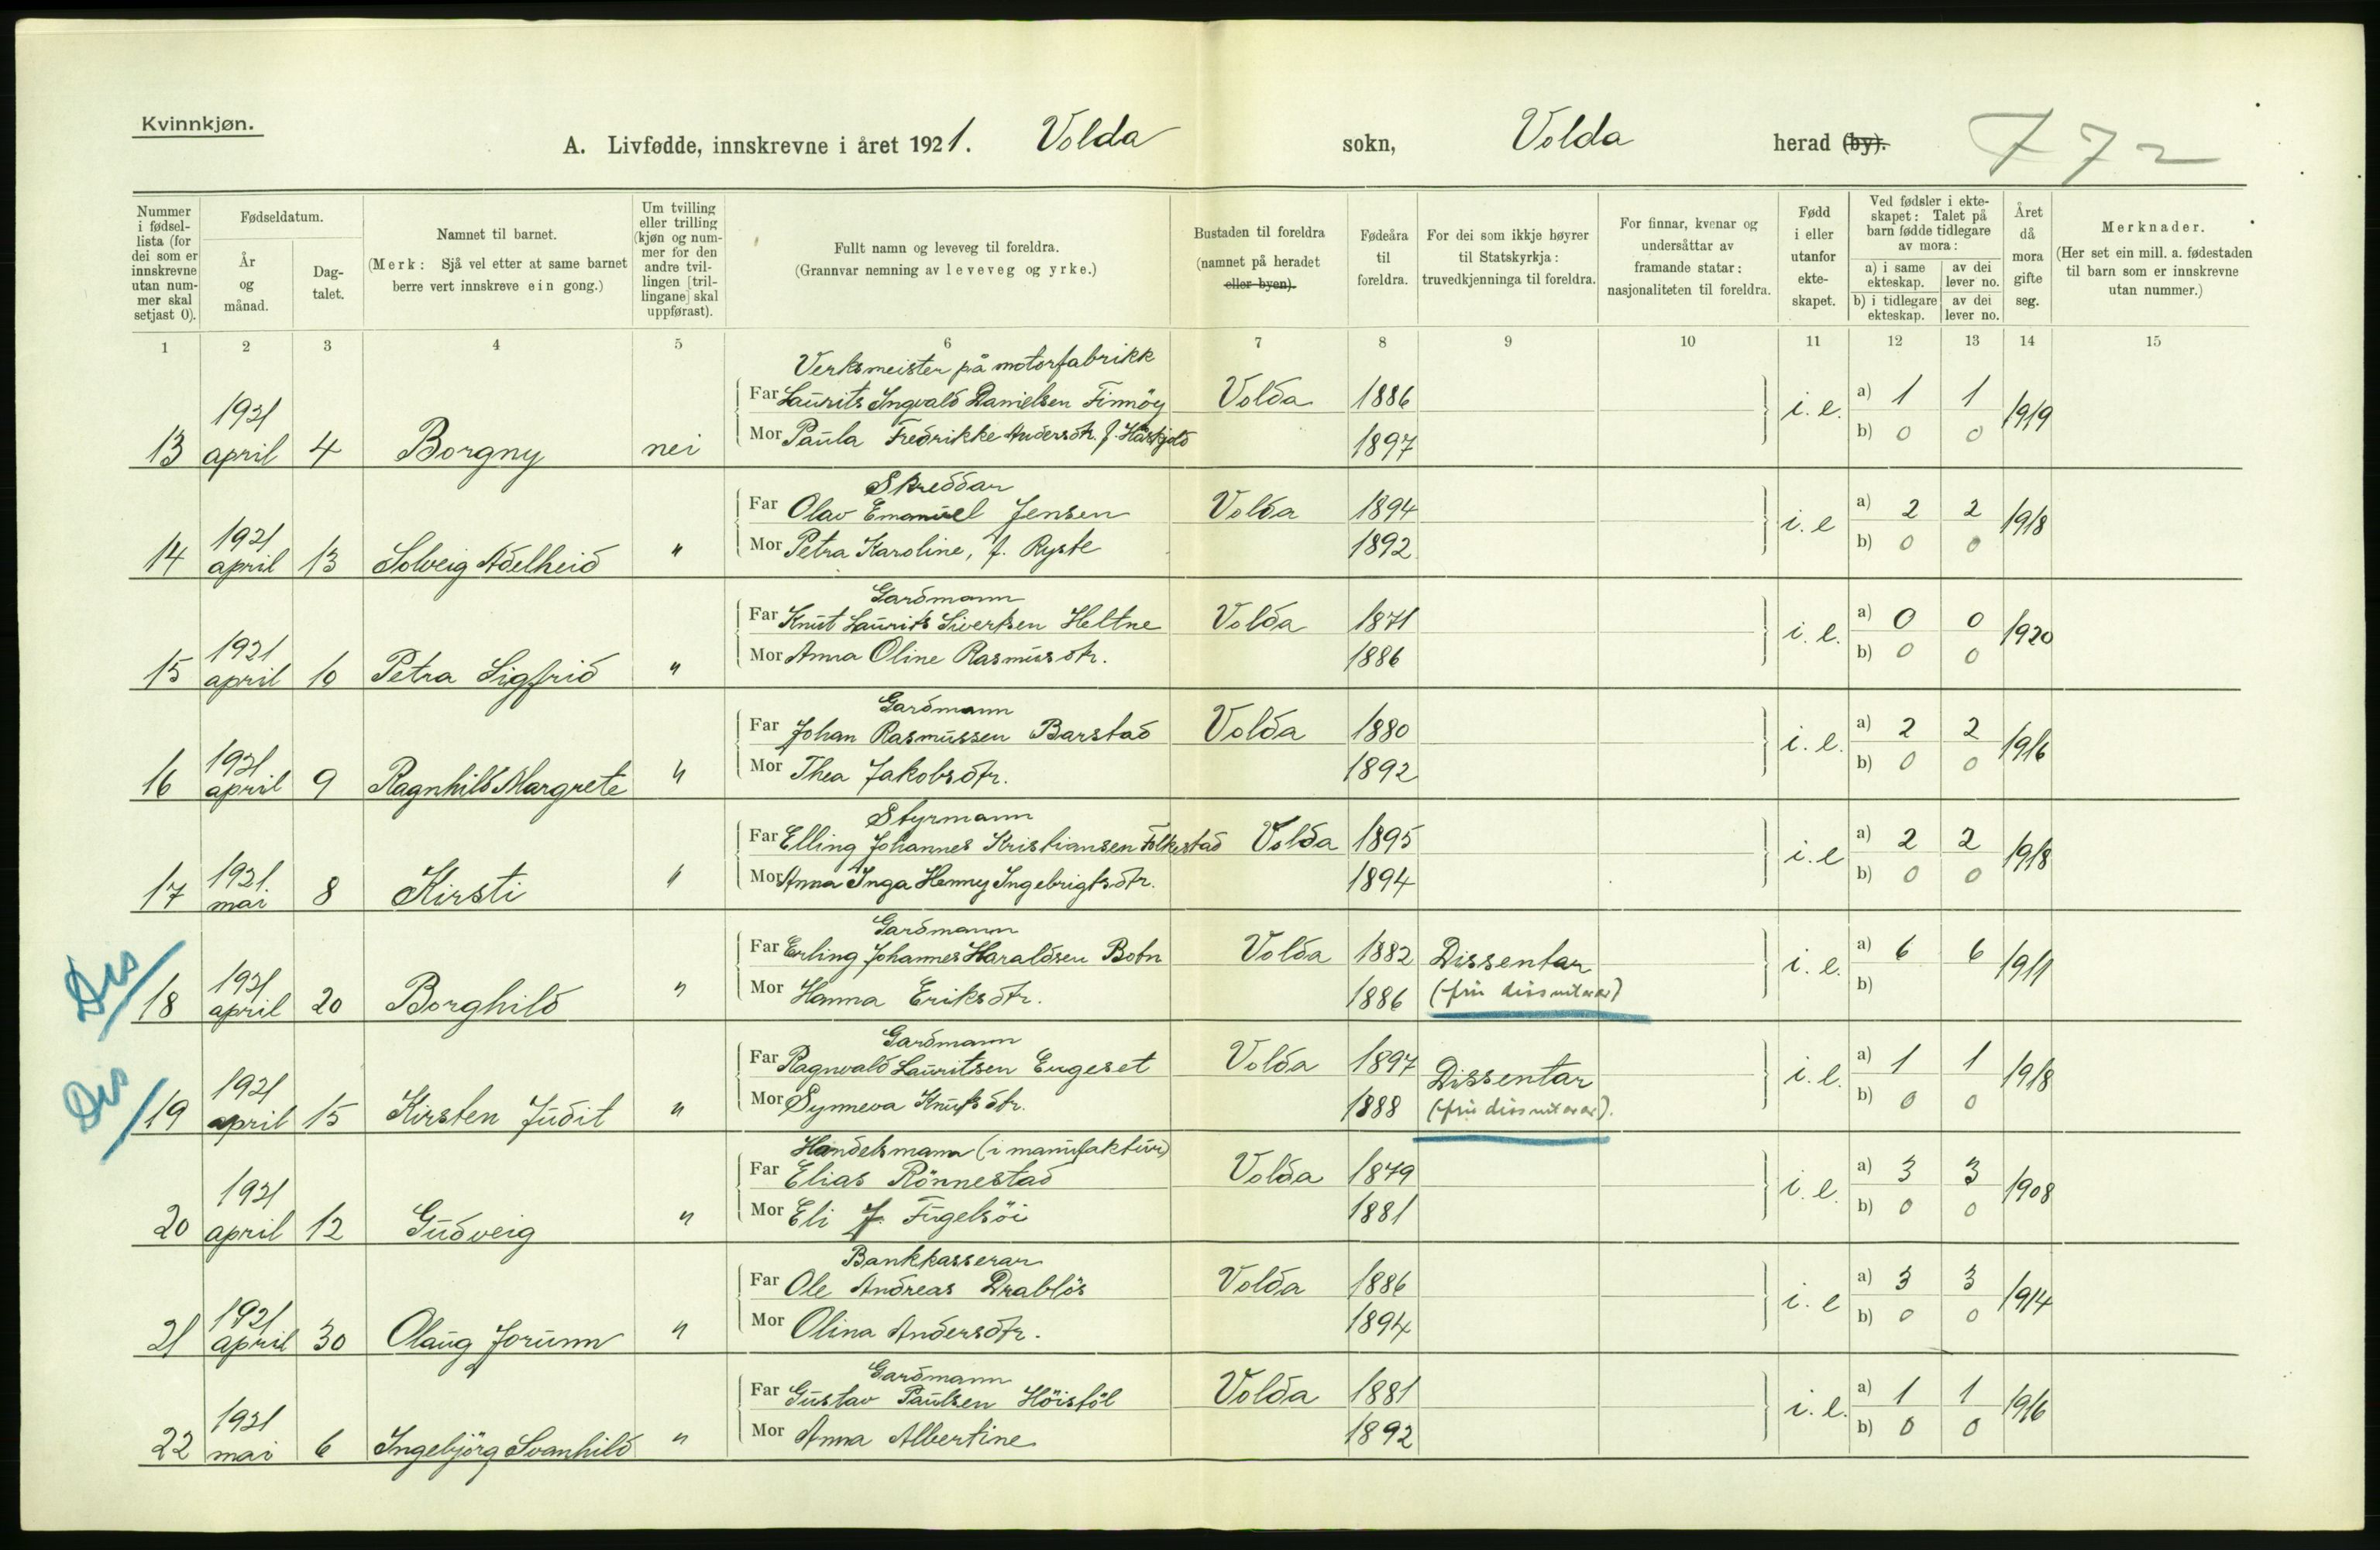 Kvinnkjøn.
A. Livfødde, innskrevne i året 1921. Volda sokn, Volda herad (by). 772
Nummer i fødsel-lista (for dei som er innskrevne utan num-mer skal setjast 0).
Fødseldatum.
År og månad.
Dag-talet.
Namnet til barnet.
(Merk: Sjå vel etter at same barnet berre vert innskreve ein gong.)
Um tvilling eller trilling (kjøn og num-mer for den andre tvil-lingen [tril-lingane] skal uppførast).
Fullt namn og leveveg til foreldra.
(Grannvar nemning av leveveg og yrke.)
Bustaden til foreldra (namnet på heradet eller byen).
Fødeåra til foreldra.
For dei som ikkje høyrer til Statskyrkja: truvedkjenninga til foreldra.
For finnar, kvenar og undersåttar av framande statar: nasjonaliteten til foreldra.
Fødd i eller utanfor ekte-skapet.
Ved fødsler i ekte-skapet: Talet på barn fødde tidlegare av mora:
a) i same ekteskap. av dei lever no.
b) i tidlegare ekteskap. av dei lever no.
Året då mora gifte seg.
Merknader.
(Her set ein mill. a. fødestaden til barn som er innskrevne utan nummer.)
1 2 3 4 5 6 7 8 9 10 11 12 13 14 15
Verksmeister på motorfabrikk
Far Laurits Ingvald Danielsen Finnöy Volda 1886 i. e. a) 1 1 1919
13 1921 april 4 Borgny nei Mor Paula Fredrikke Andersdtr. f. Håskjold 1897 b) 0 0
Skreddar
Far Olav Emanuel Jensen Volda 1894 i. e a) 2 2 1918
14 1921 april 13 Solveig Adelheid " Mor Petra Karoline, f. Ryste 1892 b) 0 0
Gardmann
Far Knut Laurits Sivertsen Heltne Volda 1871 i. e. a) 0 0 1920
15 1921 april 10 Petra Sigfrid " Mor Anna Oline Rasmusdtr. 1886 b) 0 0
Gardmann
Far Johan Rasmussen Barstad Volda 1880 i. e. a) 2 2 1916
16 1921 april 9 Ragnhild Margrete " Mor Thea Jakobsdtr. 1892 b) 0 0
Styrmann
Far Elling Johannes Kristiansen Folkestad Volda 1895 i. e a) 2 2 1918
17 1921. mai 8 Kirsti " Mor Anna Inga Henny Ingebrigtsdtr. 1894 b) 0 0
Gardmann
Dis Far Erling Johannes Haraldsen Botn Volda 1882 Dissentar i. e. a) 6 6 1911
18 1921 april 20 Borghild " Mor Hanna Eriksdtr. 1886 b)
Gardmann
Dis Far Ragnvald Lauritsen Engeset Volda 1897 Dissentar i. e. a) 1 1 1918
19 1921 april 15 Kirsten Judit " Mor Synneva Knutsdtr. 1888 b) 0 0
Handelsmann (i manufaktur)
Far Elias Rönnestad Volda 1879 i. e. a) 3 3 1908
20 1921 april 12 Gudveig " Mor Eli f. Fugelsöi 1881 b) 0 0
Bankkasserar
Far Ole Andreas Drablös Volda 1886 i. e a) 3 3 1914
21 1921 april 30 Olaug Jorunn " Mor Olina Andersdtr. 1894 b) 0 0
Gardmann
Far Gustav Paulsen Höistöl Volda 1881 i. e. a) 1 1 1916
22 1921 mai 6 Ingebjörg Svanhild " Mor Anna Albertine 1892 b) 0 0